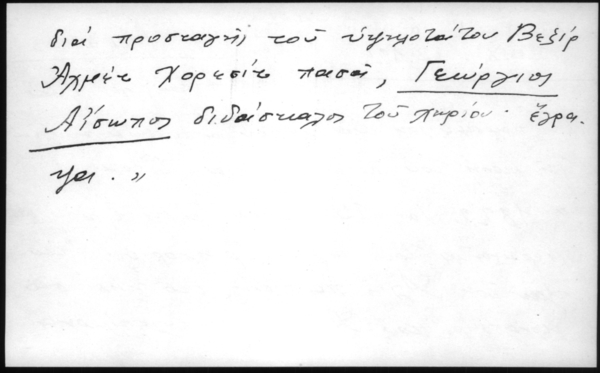 διά προσταγῆς τοῦ ὑψηλοτάτου Βεζίρ
Ἀχμέτ Χορεσίτ πασᾶ, Γεώργιος
Αἴσωπος διδάσκαλος τοῦ χωρίου. ἔγρα-
ψα. »